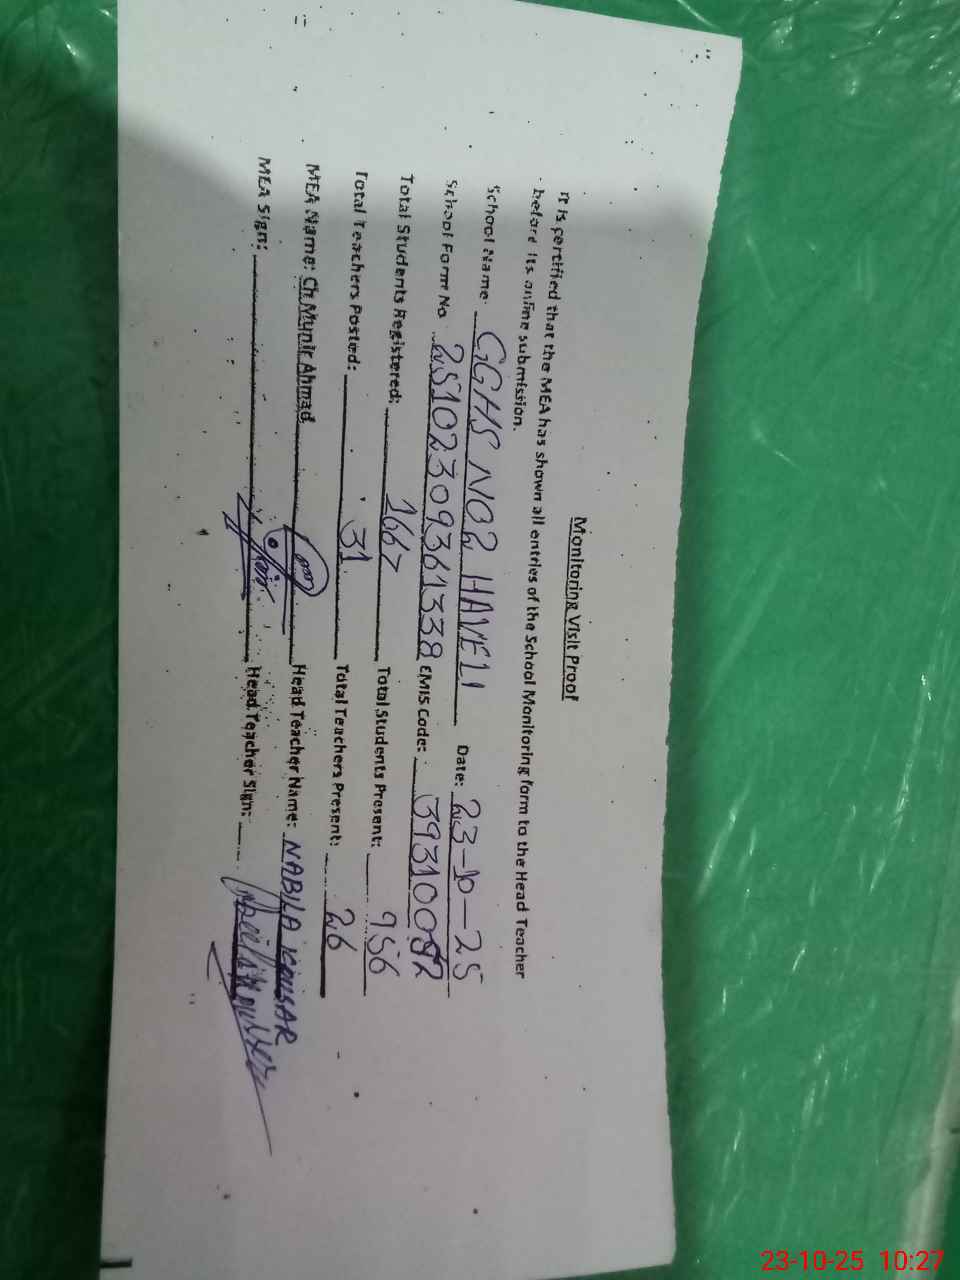 Monitoring Visit Proof
It is certified that the MEA has shown all entries of the School Monitoring form to the Head Teacher
before its online submission.
School Name GGHS NO2 HAVELI Date: 23-10-25
School Form No 25102309361338 EMIS Code: 39310092
Total Students Registered: 1667 Total Students Present: 956
Total Teachers Posted: 31 Total Teachers Present: 26
MEA Name: Ch Munir Ahmad Head Teacher Name: NABILA KOUSAR
MEA Sign: Head Teacher Sign:
23-10-25 10:27